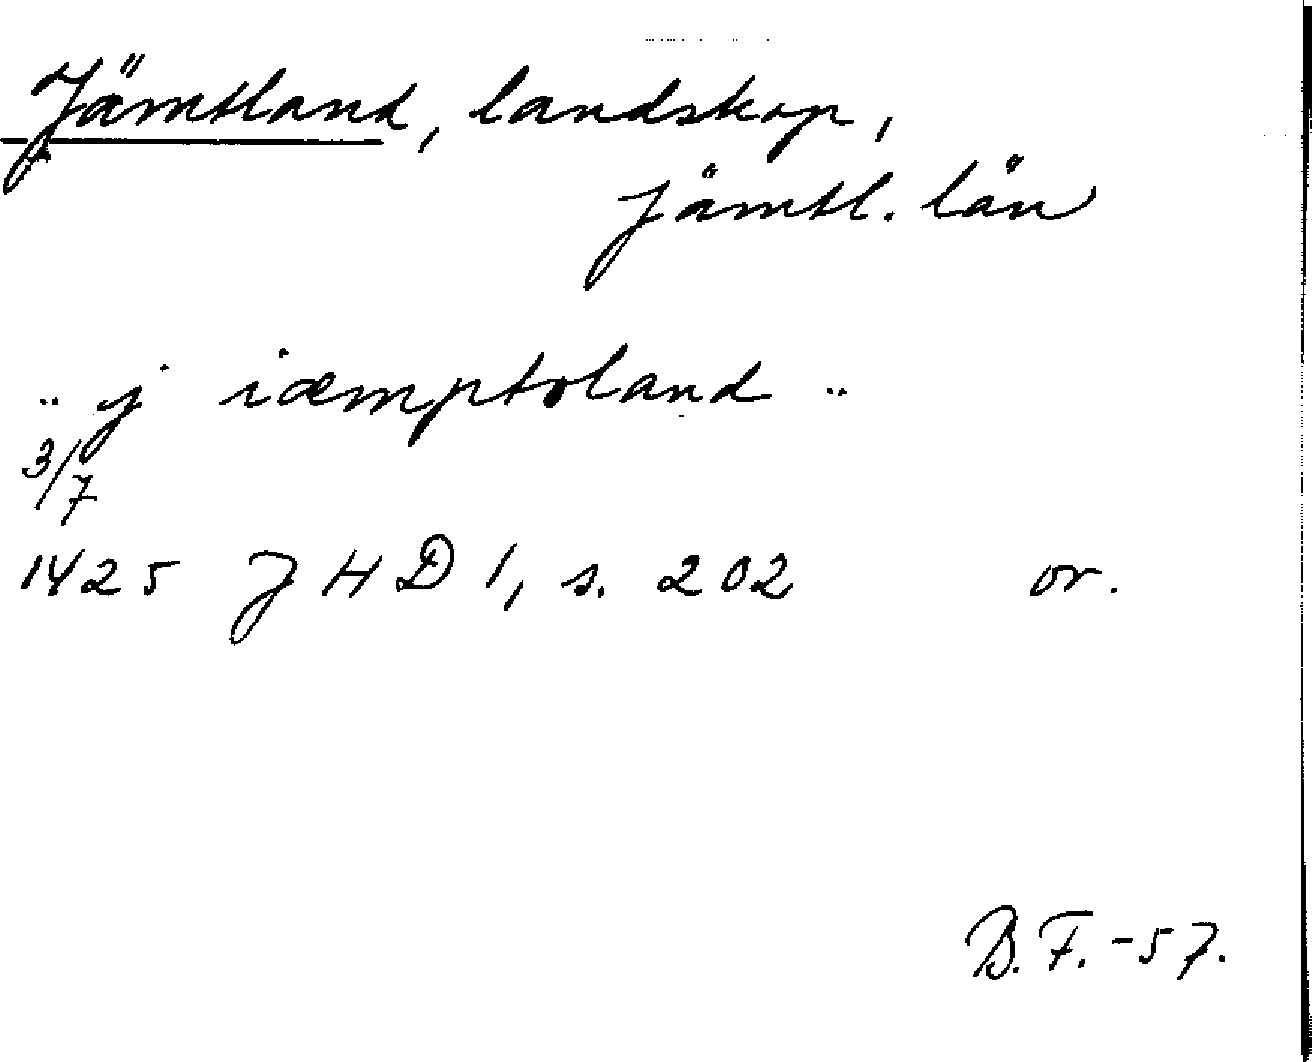 Jämtland, landskap,
Jämtl. län
.. j iæmptoland ..
3/7
1425 JHD 1, s. 202 or.
B.F. -57.